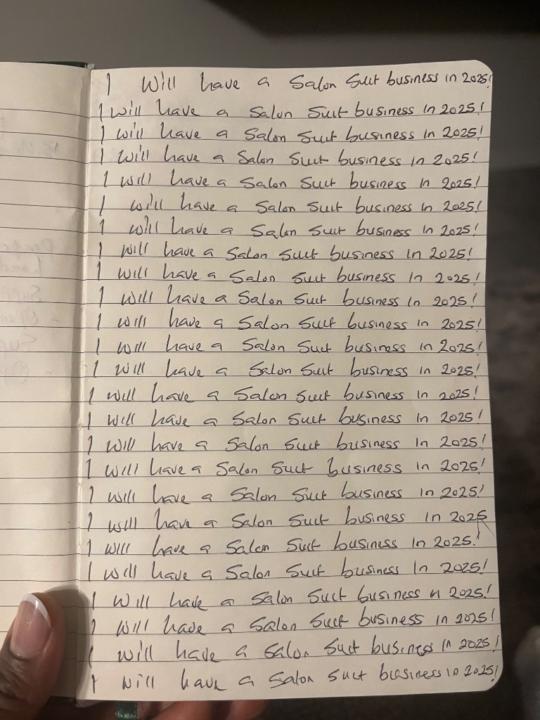 I will have a Salon Suit business in 2025!
I will have a Salon Suit business in 2025!
I will have a Salon Suit business in 2025!
I will have a Salon Suit business in 2025!
I will have a Salon Suit business in 2025!
I will have a Salon Suit business in 2025!
I will have a Salon Suit business in 2025!
I will have a Salon Suit business in 2025!
I will have a Salon Suit business in 2025!
I will have a Salon Suit business in 2025!
I will have a Salon Suit business in 2025!
I will have a Salon Suit business in 2025!
I will have a Salon Suit business in 2025!
I will have a Salon Suit business in 2025!
I will have a Salon Suit business in 2025!
I will have a Salon Suit business in 2025!
I will have a Salon Suit business in 2025!
I will have a Salon Suit business in 2025!
I will have a Salon Suit business in 2025
I will have a Salon Suit business in 2025!
I will have a Salon Suit business in 2025!
I will have a Salon Suit business in 2025!
I will have a Salon Suit business in 2025!
I will have a Salon Suit business in 2025!
I will have a Salon Suit business in 2025!